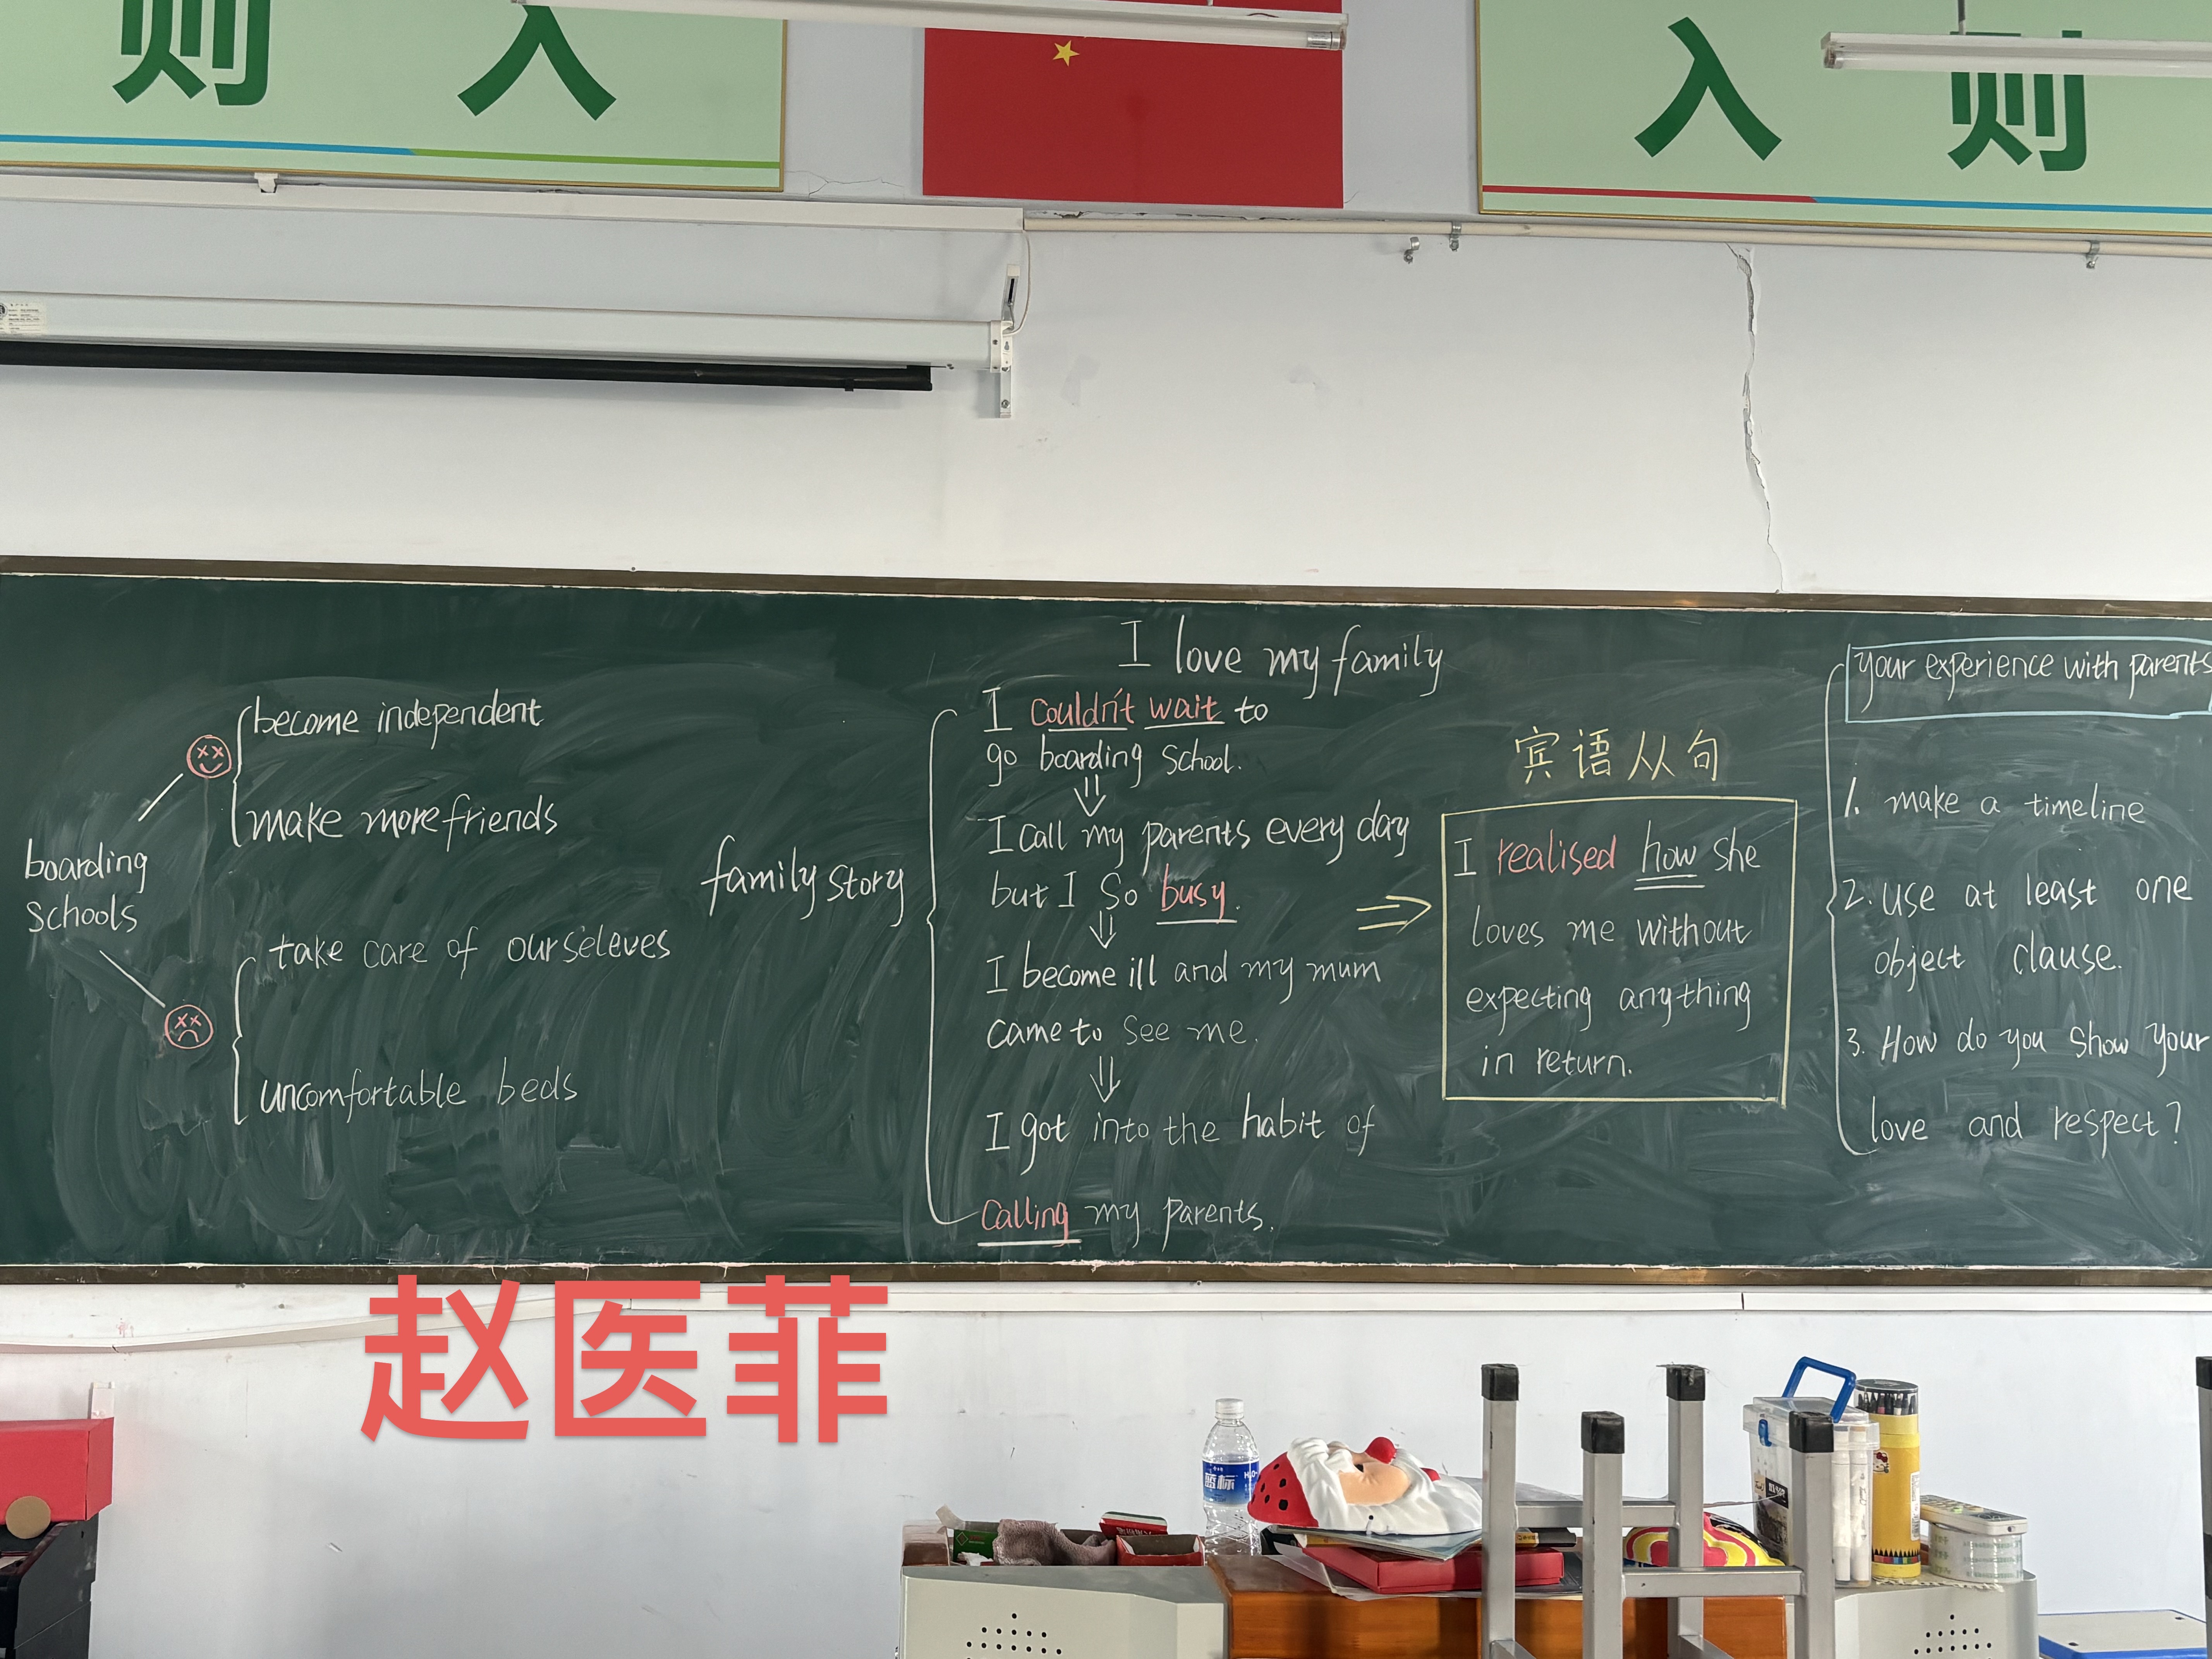 则 入
入 则
I love my family
boarding
schools
become independent
make more friends
take care of ourseleves
uncomfortable beds
family story
I couldn't wait to
go boarding school.
I call my parents every day
but I so busy.
I become ill and my mum
came to see me.
I got into the habit of
calling my parents.
宾语从句
I realised how she
loves me without
expecting anything
in return.
your experience with parents
1. make a timeline
2. use at least one
object clause.
3. How do you show your
love and respect?
赵医菲